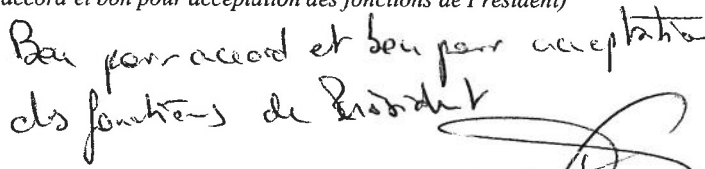 accord et bon pour acceptation des fonctions de Président)
Bon pour accord et bon pour acceptation
des fonctions de Président